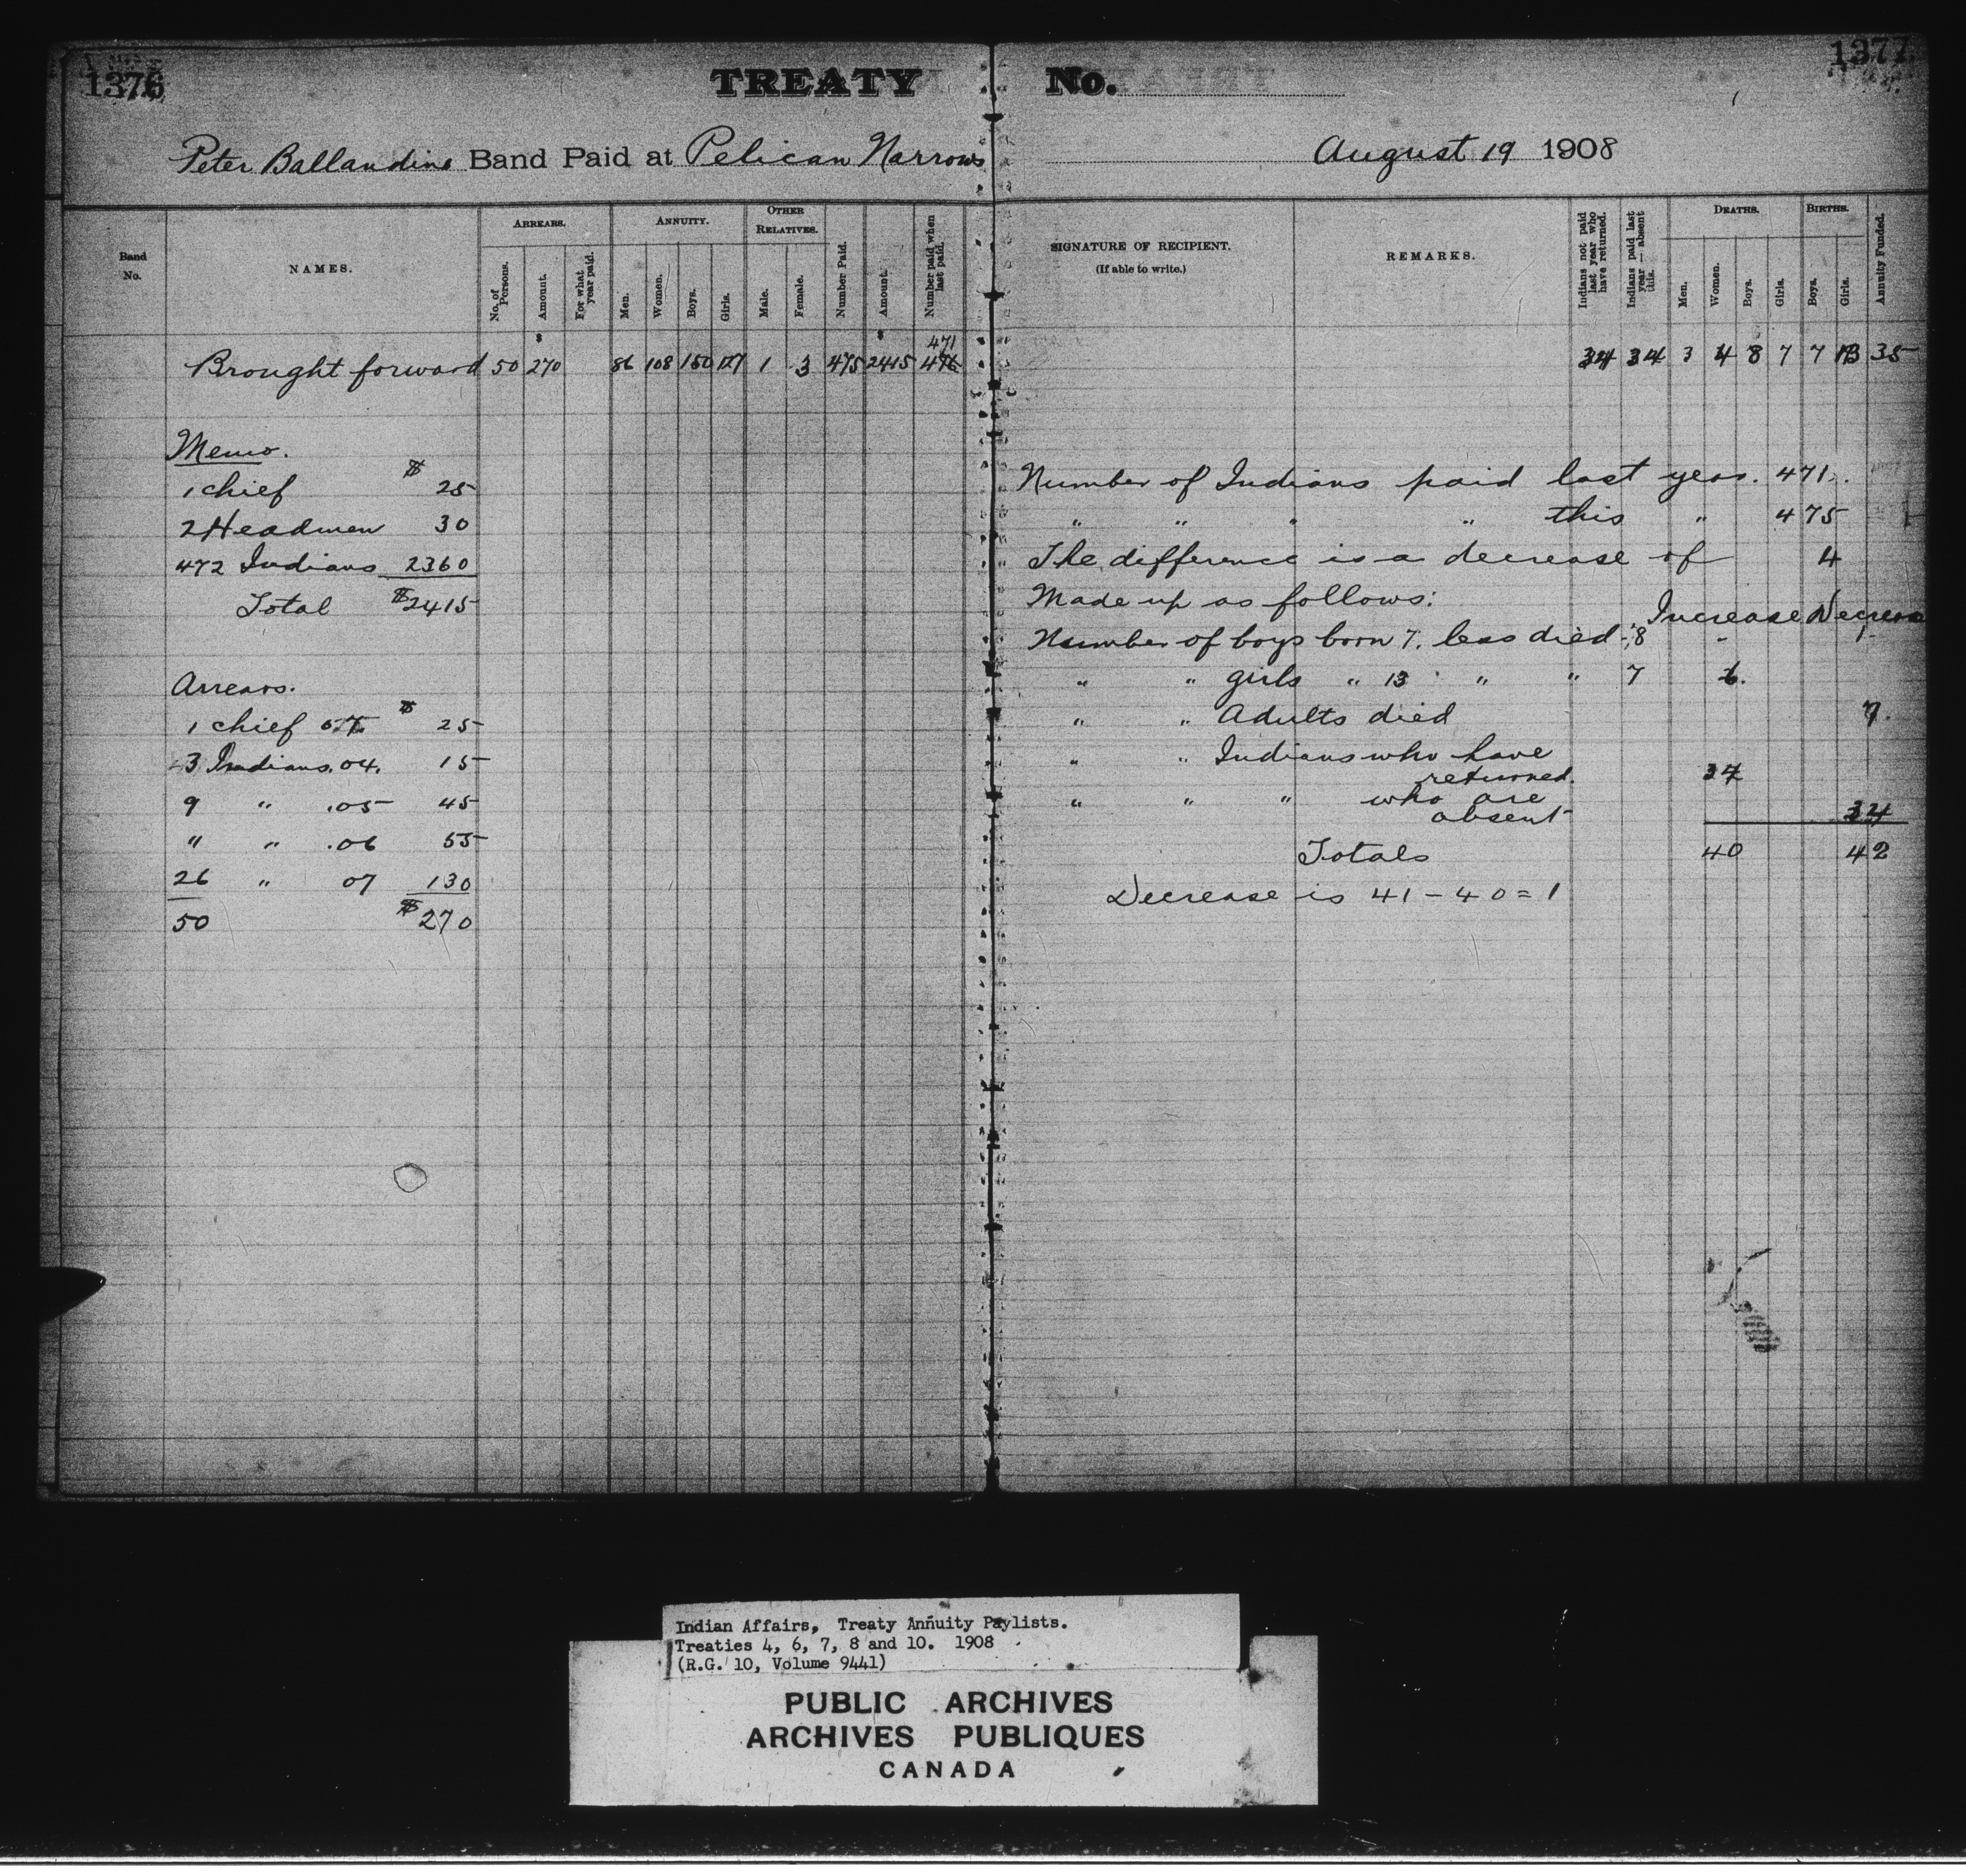 1376
TREATY No.
1377
Peter Ballandine Band Paid at Pelican Narrows August 19 1908
Band No.
NAMES.
ARREARS.
No. of Persons.
Amount.
For what year paid.
ANNUITY.
Men.
Women.
Boys.
Girls.
OTHER RELATIVES.
Male.
Female.
Number Paid.
Amount.
Number paid when last paid.
SIGNATURE OF RECIPIENT.
(If able to write.)
REMARKS.
Indians not paid last year who have returned.
Indians paid last year—absent this.
DEATHS.
Men.
Women.
Boys.
Girls.
BIRTHS.
Boys.
Girls.
Annuity Funded.
$ $ 471
Brought forward 50 270 86 108 150 127 1 3 475 2415 34 3 4 8 7 7 13 35
Memo.
1 chief $ 25
2 Headmen 30
472 Indians 2360
Total $2415
Arrears.
1 chief $ 25
3 Indians .04. 15
9 " .05 45
" " .06 55
26 " 07 130
50 $270
Number of Indians paid last year. 471.
" " " " this " 475
The difference is a decrease of 4
Made up as follows:
Increase Decrease
Number of boys born 7. less died 8 " 1
" " girls " 13 " " 7 6.
" " Adults died 7.
" " Indians who have
returned.
" " " who are
absent 34
Totals 40 42
Decrease is 41 - 40 = 1
Indian Affairs, Treaty Annuity Paylists.
Treaties 4, 6, 7, 8 and 10. 1908
(R.G. 10, Volume 9441)
PUBLIC ARCHIVES
ARCHIVES PUBLIQUES
CANADA